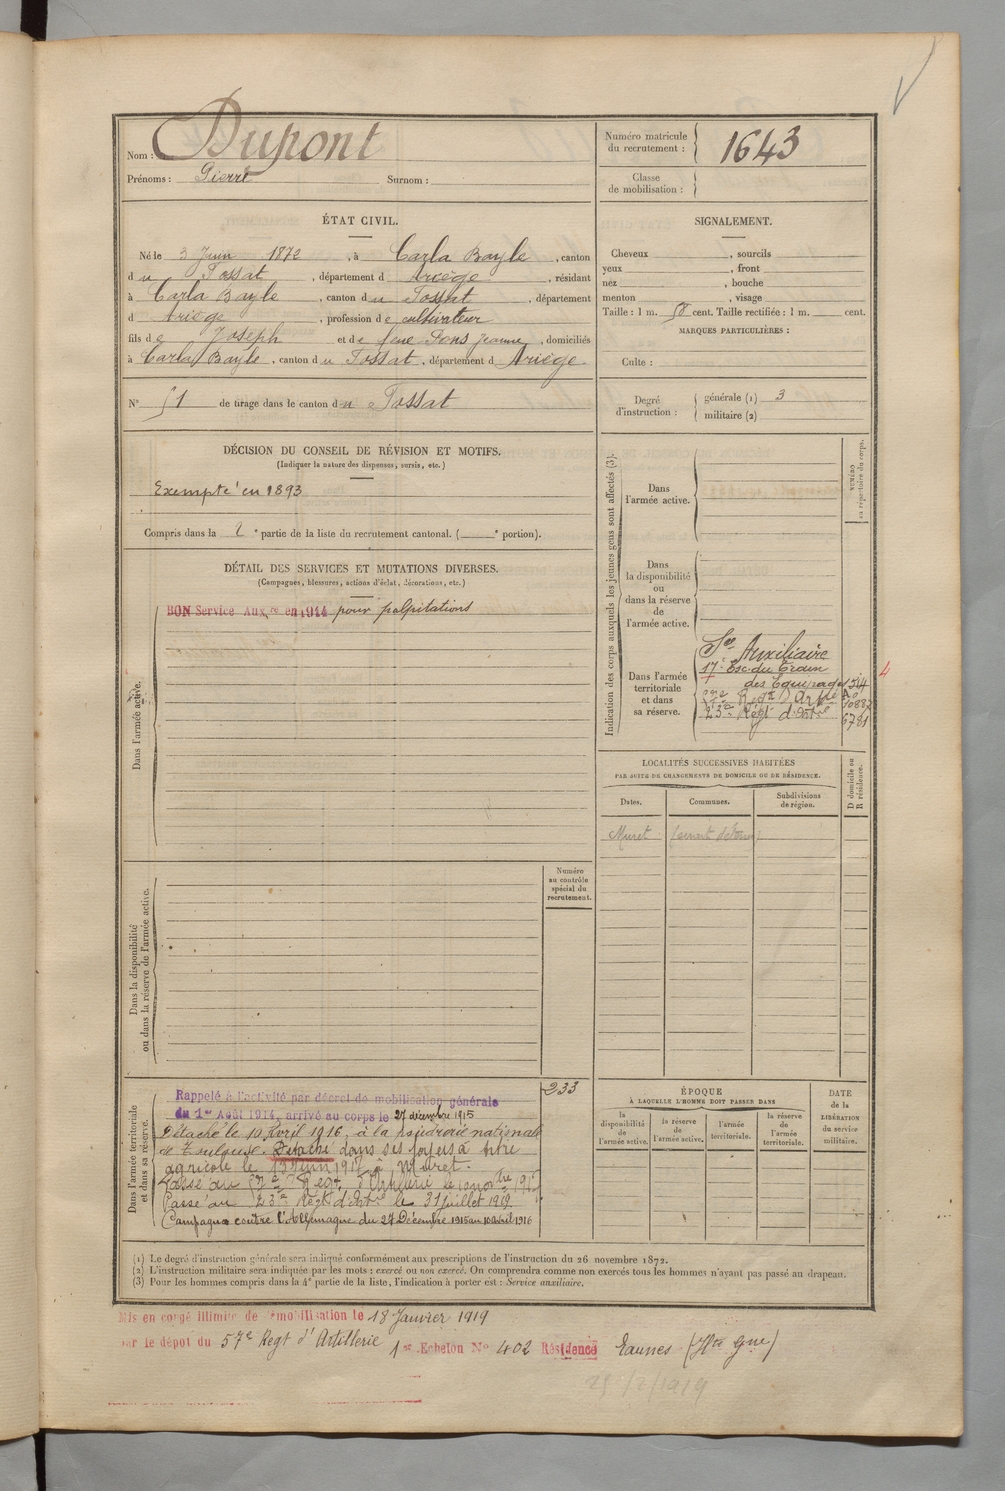 Nom : Dupont
Prénoms : Pierre Surnom :
Numéro matricule du recrutement : 1643
Classe de mobilisation :
ÉTAT CIVIL.
Né le 3 Juin 1872, à Carla Bayle, canton
du Fossat, département d Ariège, résidant
à Carla Bayle, canton du Fossat, département
d Ariège, profession de cultivateur
fils de Joseph et de feue Pons Jeanne, domiciliés
à Carla Bayle, canton du Fossat, département d Ariège.
N° 51 de tirage dans le canton du Fossat
SIGNALEMENT.
Cheveux , sourcils
yeux , front
nez , bouche
menton , visage
Taille : 1 m. 58 cent. Taille rectifiée : 1 m. cent.
MARQUES PARTICULIÈRES :
Culte :
Degré d'instruction : générale (1) 3
militaire (2)
DÉCISION DU CONSEIL DE RÉVISION ET MOTIFS.
(Indiquer la nature des dispenses, sursis, etc.)
Exempté en 1893
Compris dans la 2e partie de la liste du recrutement cantonal. ( e portion).
DÉTAIL DES SERVICES ET MUTATIONS DIVERSES.
(Campagnes, blessures, actions d'éclat, décorations, etc.)
Dans l'armée active.
BON Service Auxre en 1914 pour palpitations
Dans la disponibilité
ou dans la réserve de l'armée active.
Numéro
au contrôle
spécial du
recrutement.
233
Dans l'armée territoriale
et dans sa réserve.
Rappelé à l'activité par décret de mobilisation générale
du 1er Août 1914, arrivé au corps le 27 décembre 1915
Détaché le 10 Avril 1916, à la poudrerie nationale
de Toulouse. Détaché dans ses foyers à titre
agricole le 13 Juin 1917 à Muret.
Passé au 57e Régt d'Artillerie le
Passé au 23e Régt d'Artie le 31 juillet 1918
Campagne contre l'Allemagne du 27 Décembre 1915 au 10 Avril 1916
Indication des corps auxquels les jeunes gens sont affectés (3).
NUMÉRO
au répertoire du corps.
Dans
l'armée active.
Dans
la disponibilité
ou
dans la réserve
de
l'armée active.
Dans l'armée
territoriale
et dans
sa réserve.
Sce Auxiliaire
17e Esc. du Train
des Equipages
57e Régt D'Artie
23e Régt d'Artie
6781
4
LOCALITÉS SUCCESSIVES HABITÉES
PAR SUITE DE CHANGEMENTS DE DOMICILE OU DE RÉSIDENCE.
Dates. Communes. Subdivisions
de région.
D domicile ou
R résidence.
Muret
ÉPOQUE
À LAQUELLE L'HOMME DOIT PASSER DANS
la disponibilité de l'armée active.
la réserve de l'armée active.
l'armée territoriale.
la réserve de l'armée territoriale.
DATE
de la
LIBÉRATION
du service
militaire.
(1) Le degré d'instruction générale sera indiqué conformément aux prescriptions de l'instruction du 26 novembre 1872.
(2) L'instruction militaire sera indiquée par les mots : exercé ou non exercé. On comprendra comme non exercés tous les hommes n'ayant pas passé au drapeau.
(3) Pour les hommes compris dans la 4e partie de la liste, l'indication à porter est : Service auxiliaire.
Mis en congé illimité de démobilisation le 18 Janvier 1919
par le dépôt du 57e Régt d'Artillerie 1er Echelon N° 402 Résidence Eaunes (Hte Gne)